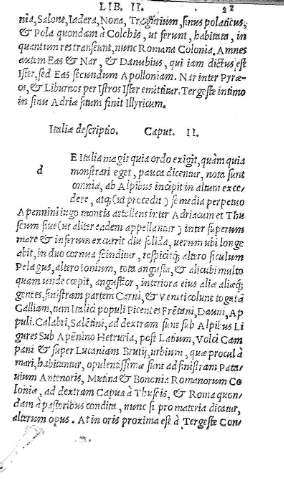 LIB. II. 22
nia, Salone, Iadera, Nona, Tragurium, sinus polaticus,
& Pola quondam à Colchis, ut ferunt, habitata, in
quantum res transeunt, nunc Romana Colonia. Amnes
autem Eas & Nar, & Danubius, qui iam dictus est
Ister, sed Eas secundum Apolloniam. Nar inter Pyræ-
os, & Liburnos per Istros Ister emittitur. Tergeste intimo
in sinu Adriæ situm finit Illyricum.
Italiæ descriptio. Caput. II.
d E Italia magis quia ordo exigit, quàm quia
monstrari eget, pauca dicentur, nota sunt
omnia, ab Alpibus incipit in altum exce-
dere, atq; (ut procedit) se media perpetuo
Apennini iugo montis attollens inter Adriacum et Thu
scum sive (ut aliter eadem appellantur) inter superum
mare & inferum excurrit diu solida, verum ubi longe
abit, in duo cornua scinditur, respicitq; altero siculum
Pelagus, altero Ionium, tota angusta, & alicubi multo
quam unde cœpit, angustior, interiora eius aliæ aliæq;
gentes, sinistram partem Carni, & Veneti colunt togatã
Galliam, tum Italici populi Picentes Fretani, Dauni, Ap
puli. Calabri, Salentini, ad dextram sunt sub Alpibus Li
gures Sub Apẽnino Hetruria, post Latium, Volsci Cam
pani & super Lucaniam Brutij, urbium, quæ procul à
mari, habitantur, opulentissimæ sunt ad sinistram Pata-
uium Antenoris, Mutina & Bononia Romanorum Co
loniæ, ad dextram Capua à Thuscis, & Roma quon-
dam à pastoribus condita, nunc si pro materia dicatur,
alterum opus. At in oris proxima est à Tergeste Con-